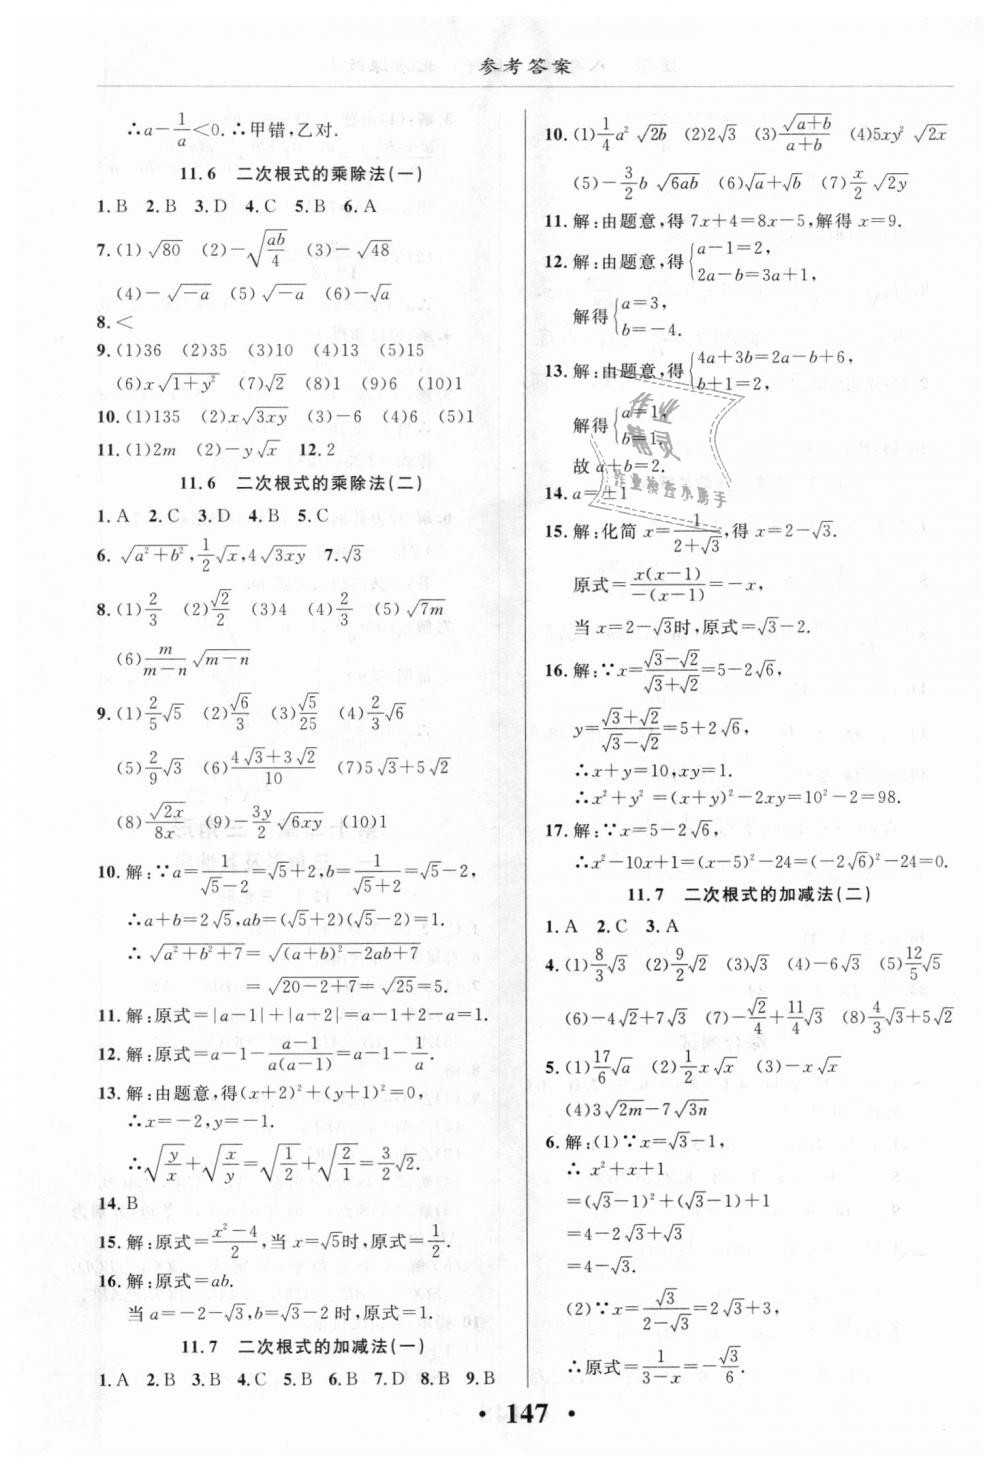 参考答案
∴a-\frac{1}{a}<0.∴甲错,乙对.
11.6 二次根式的乘除法(一)
1.B 2.B 3.D 4.C 5.B 6.A
7.(1)√80 (2)-√(\frac{ab}{4}) (3)-√48
(4)-√(-a) (5)√(-a) (6)-√a
8.<
9.(1)36 (2)35 (3)10 (4)13 (5)15
(6)x√(1+y²) (7)√2 (8)1 (9)6 (10)1
10.(1)135 (2)x√(3xy) (3)-6 (4)6 (5)1
11.(1)2m (2)-y√x 12.2
11.6 二次根式的乘除法(二)
1.A 2.C 3.D 4.B 5.C
6.√(a²+b²),\frac{1}{2}√x,4√(3xy) 7.√3
8.(1)\frac{2}{3} (2)\frac{√2}{2} (3)4 (4)\frac{2}{3} (5)√(7m)
(6)\frac{m}{m-n}√(m-n)
9.(1)\frac{2}{5}√5 (2)\frac{√6}{3} (3)\frac{√5}{25} (4)\frac{2}{3}√6
(5)\frac{2}{9}√3 (6)\frac{4√3+3√2}{10} (7)5√3+5√2
(8)\frac{√(2x)}{8x} (9)-\frac{3y}{2}√(6xy) (10)1
10.解:∵a=\frac{1}{√5-2}=√5+2,b=\frac{1}{√5+2}=√5-2,
∴a+b=2√5,ab=(√5+2)(√5-2)=1.
∴√(a²+b²+7)=√((a+b)²-2ab+7)
=√(20-2+7)=√25=5.
11.解:原式=|a-1|+|a-2|=a-1+2-a=1.
12.解:原式=a-1-\frac{a-1}{a(a-1)}=a-1-\frac{1}{a}.
13.解:由题意,得(x+2)²+(y+1)²=0,
∴x=-2,y=-1.
∴√(\frac{y}{x})+√(\frac{x}{y})=√(\frac{1}{2})+√(\frac{2}{1})=\frac{3}{2}√2.
14.B
15.解:原式=\frac{x²-4}{2},当x=√5时,原式=\frac{1}{2}.
16.解:原式=ab.
当a=-2-√3,b=√3-2时,原式=1.
11.7 二次根式的加减法(一)
1.A 2.B 3.B 4.C 5.B 6.B 7.D 8.B 9.B
10.(1)\frac{1}{4}a²√(2b) (2)2√3 (3)\frac{√(a+b)}{a+b} (4)5xy²√(2x)
(5)-\frac{3}{2}b√(6ab) (6)√a+√b (7)\frac{x}{2}√(2y)
11.解:由题意,得7x+4=8x-5,解得x=9.
12.解:由题意,得{a-1=2,
2a-b=3a+1,
解得{a=3,
b=-4.
13.解:由题意,得{4a+3b=2a-b+6,
b+1=2,
解得{a=1,
b=1,
故a+b=2.
14.a=±1
15.解:化简x=\frac{1}{2+√3},得x=2-√3.
原式=\frac{x(x-1)}{-(x-1)}=-x,
当x=2-√3时,原式=√3-2.
16.解:∵x=\frac{√3-√2}{√3+√2}=5-2√6,
y=\frac{√3+√2}{√3-√2}=5+2√6,
∴x+y=10,xy=1.
∴x²+y²=(x+y)²-2xy=10²-2=98.
17.解:∵x=5-2√6,
∴x²-10x+1=(x-5)²-24=(-2√6)²-24=0.
11.7 二次根式的加减法(二)
1.A 2.C 3.A
4.(1)\frac{8}{3}√3 (2)\frac{9}{2}√2 (3)√3 (4)-6√3 (5)\frac{12}{5}√5
(6)-4√2+7√3 (7)-\frac{√2}{4}+\frac{11}{4}√3 (8)\frac{4}{3}√3+5√2
5.(1)\frac{17}{6}√a (2)\frac{1}{2}x√x (3)-x√x
(4)3√(2m)-7√(3n)
6.解:(1)∵x=√3-1,
∴x²+x+1
=(√3-1)²+(√3-1)+1
=4-2√3+√3
=4-√3.
(2)∵x=\frac{√3}{2-√3}=2√3+3,
∴原式=\frac{1}{3-x}=-\frac{√3}{6}.
作业
精灵
作业检查小助手
• 147 •